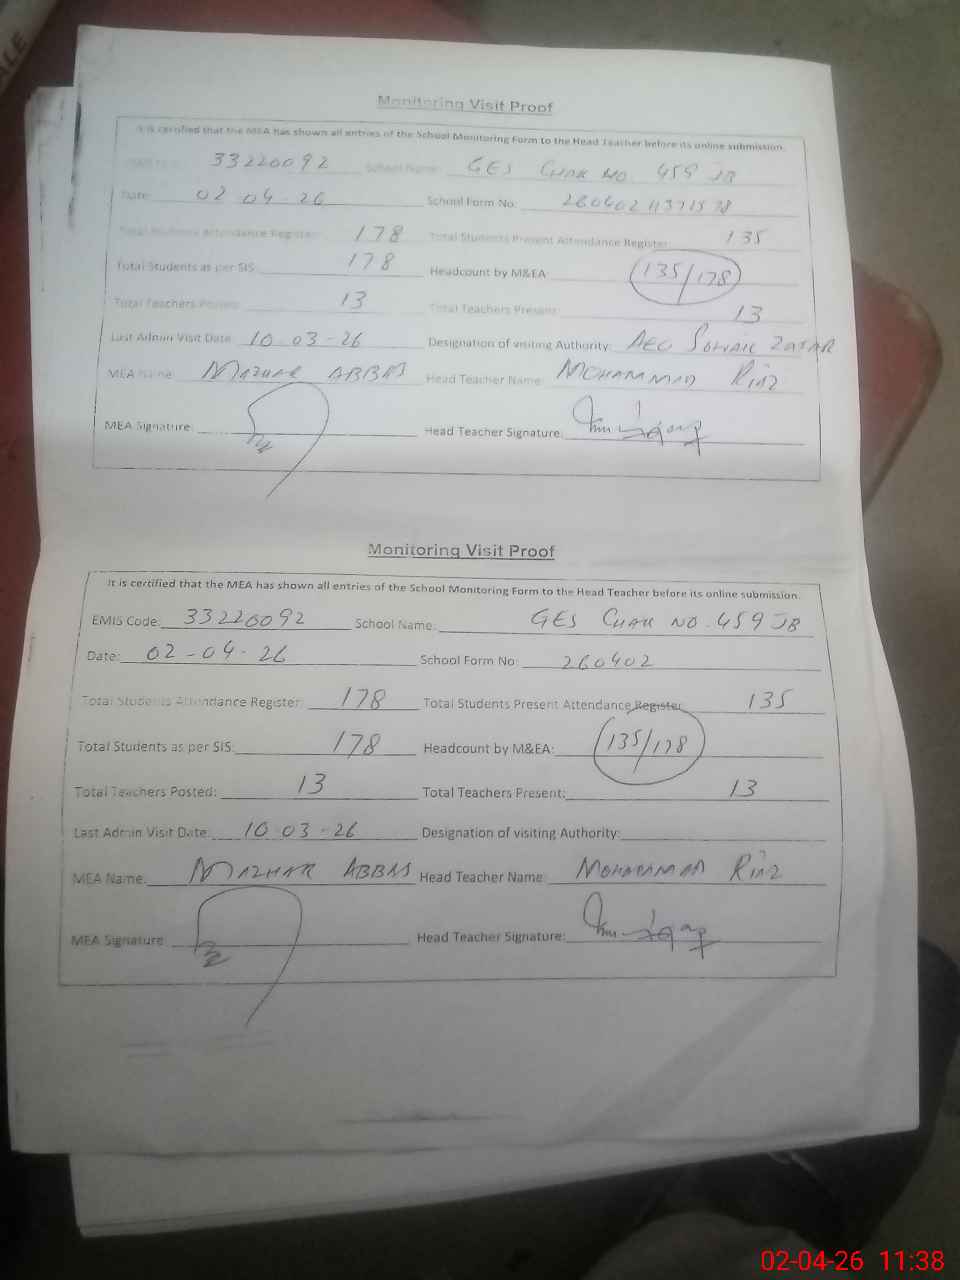 ALE
Monitoring Visit Proof
It is certified that the MEA has shown all entries of the School Monitoring Form to the Head Teacher before its online submission.
33220092 School Name: GES CHAK NO. 459 JB
Date: 02 04-26 School Form No: 260402113715
Total Students Attendance Register: 178 Total Students Present Attendance Register: 135
Total Students as per SIS: 178 Headcount by M&EA: 135/178
Total Teachers Posted: 13 Total Teachers Present: 13
Last Admin Visit Date: 10-03-26 Designation of visiting Authority: AEO SOHAIL ZAFAR
MEA Name: MAZHAR ABBAS Head Teacher Name: MOHAMMAD RIAZ
MEA Signature: Head Teacher Signature:
Monitoring Visit Proof
It is certified that the MEA has shown all entries of the School Monitoring Form to the Head Teacher before its online submission.
EMIS Code: 33220092 School Name: GES CHAK NO. 459 JB
Date: 02-04-26 School Form No: 260402
Total Students Attendance Register: 178 Total Students Present Attendance Register: 135
Total Students as per SIS: 178 Headcount by M&EA: 135/178
Total Teachers Posted: 13 Total Teachers Present: 13
Last Admin Visit Date: 10-03-26 Designation of visiting Authority:
MEA Name: MAZHAR ABBAS Head Teacher Name: MOHAMMAD RIAZ
MEA Signature Head Teacher Signature:
02-04-26 11:38